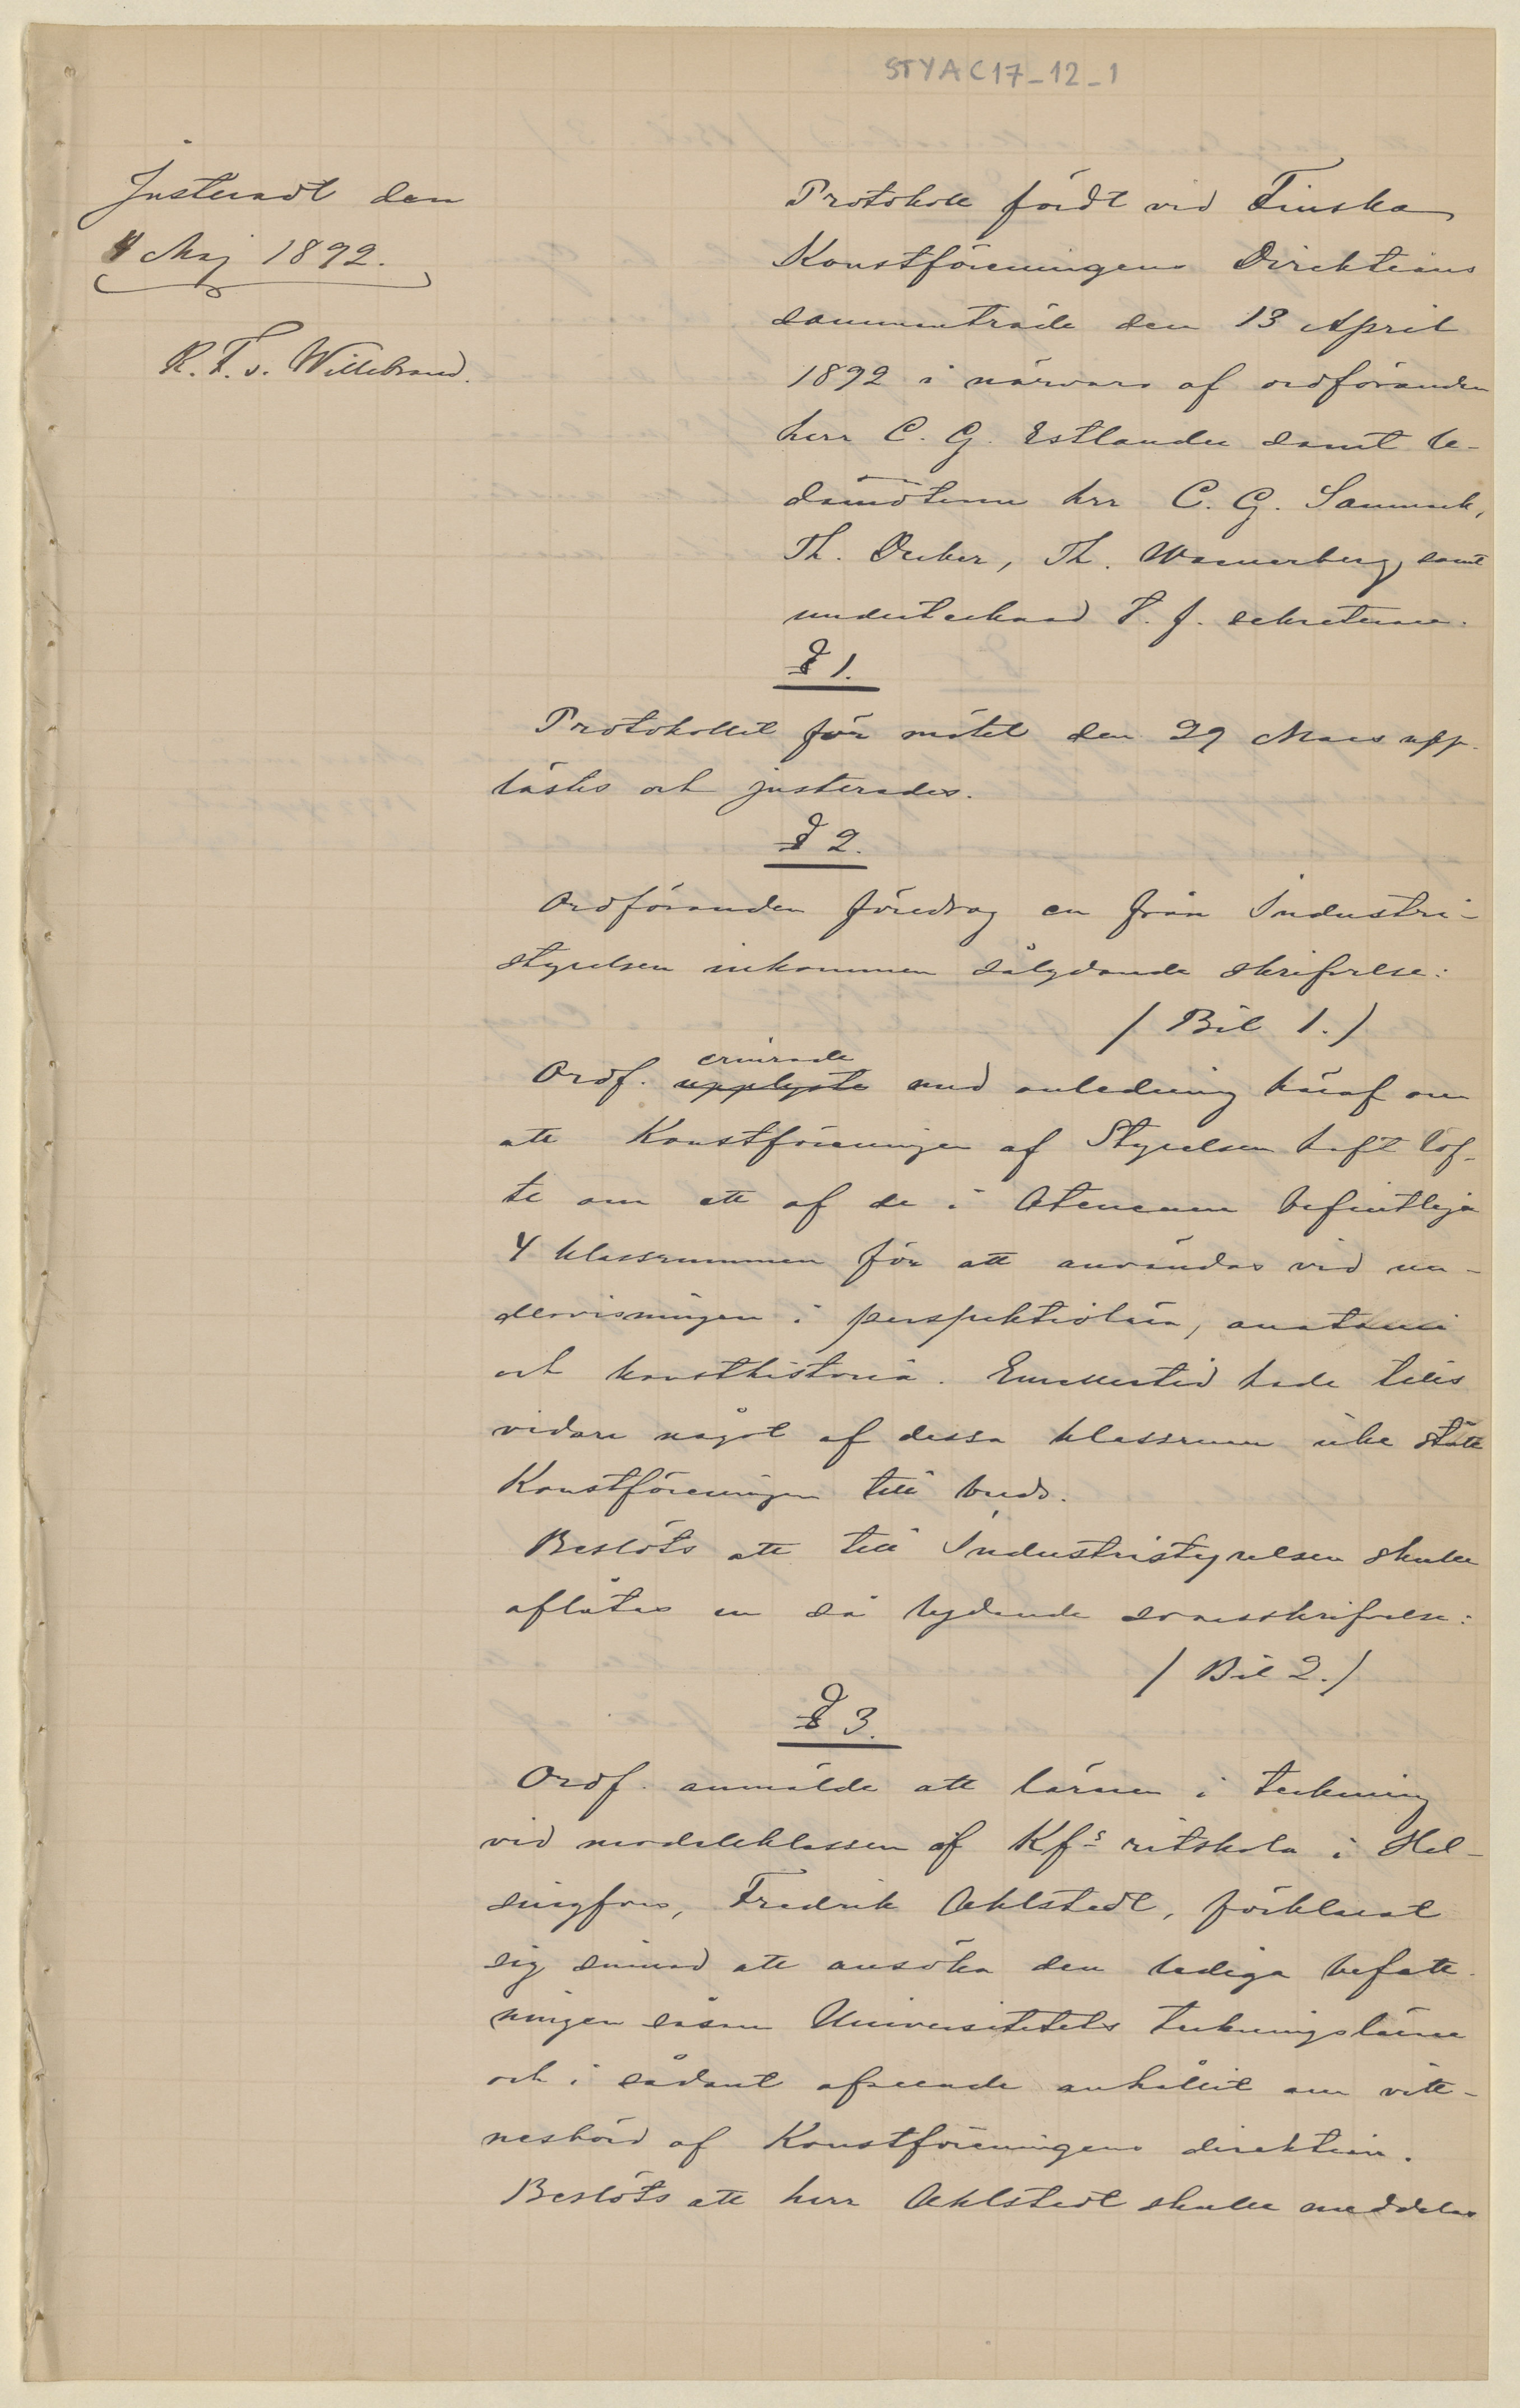 STYAC17_12_1
Justeradt den
4 Maj 1892.
R. F. v. Willebrand.
Protokoll fördt vid Finska
Konstföreningens Direktions
sammanträde den 13 April
1892 i närvaro af ordföranden
herr C. G. Estlander samt le-
damöterna hrr C. G. Sanmark,
Th. Decker, Th. Wænerberg samt
undertecknad t. f. sekreterare.
§ 1.
Protokollet för mötet den 29 Mars upp-
lästes och justerades.
§ 2.
Ordföranden föredrog en från Industri-
styrelsen inkommen sålydande skrifvelse:
/ Bil 1. /
erinrade
Ordf. upplyste med anledning häraf om
att Konstföreningen af Styrelsen haft löf-
te om ett af de i Ateneum befintliga
4 klassrummen för att användas vid un-
dervisningen i perspektivlära, anatomi
och konsthistoria. Emellertid hade tills
vidare något af dessa klassrum icke stått
Konstföreningen till buds.
Beslöts att till Industristyrelsen skulle
aflåtas en så lydande svarsskrifvelse:
/ Bil 2. /
§ 3.
Ordf. anmälde att läraren i teckning
vid modellklassen af Kfs ritskola i Hel-
singfors, Fredrik Ahlstedt, förklarat
sig sinnad att ansöka den lediga befatt-
ningen såsom Universitetets teckningslärare
och i sådant afseende anhållit om vitt-
nesbörd af Konstföreningens direktion.
Beslöts att herr Ahlstedt skulle meddelas